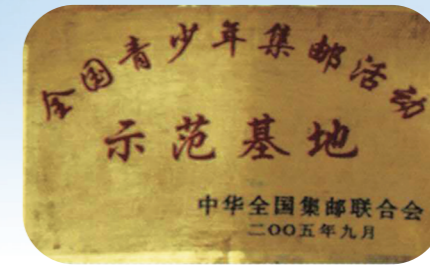 全国青少年集邮活动
示范基地
中华全国集邮联合会
二〇〇五年九月